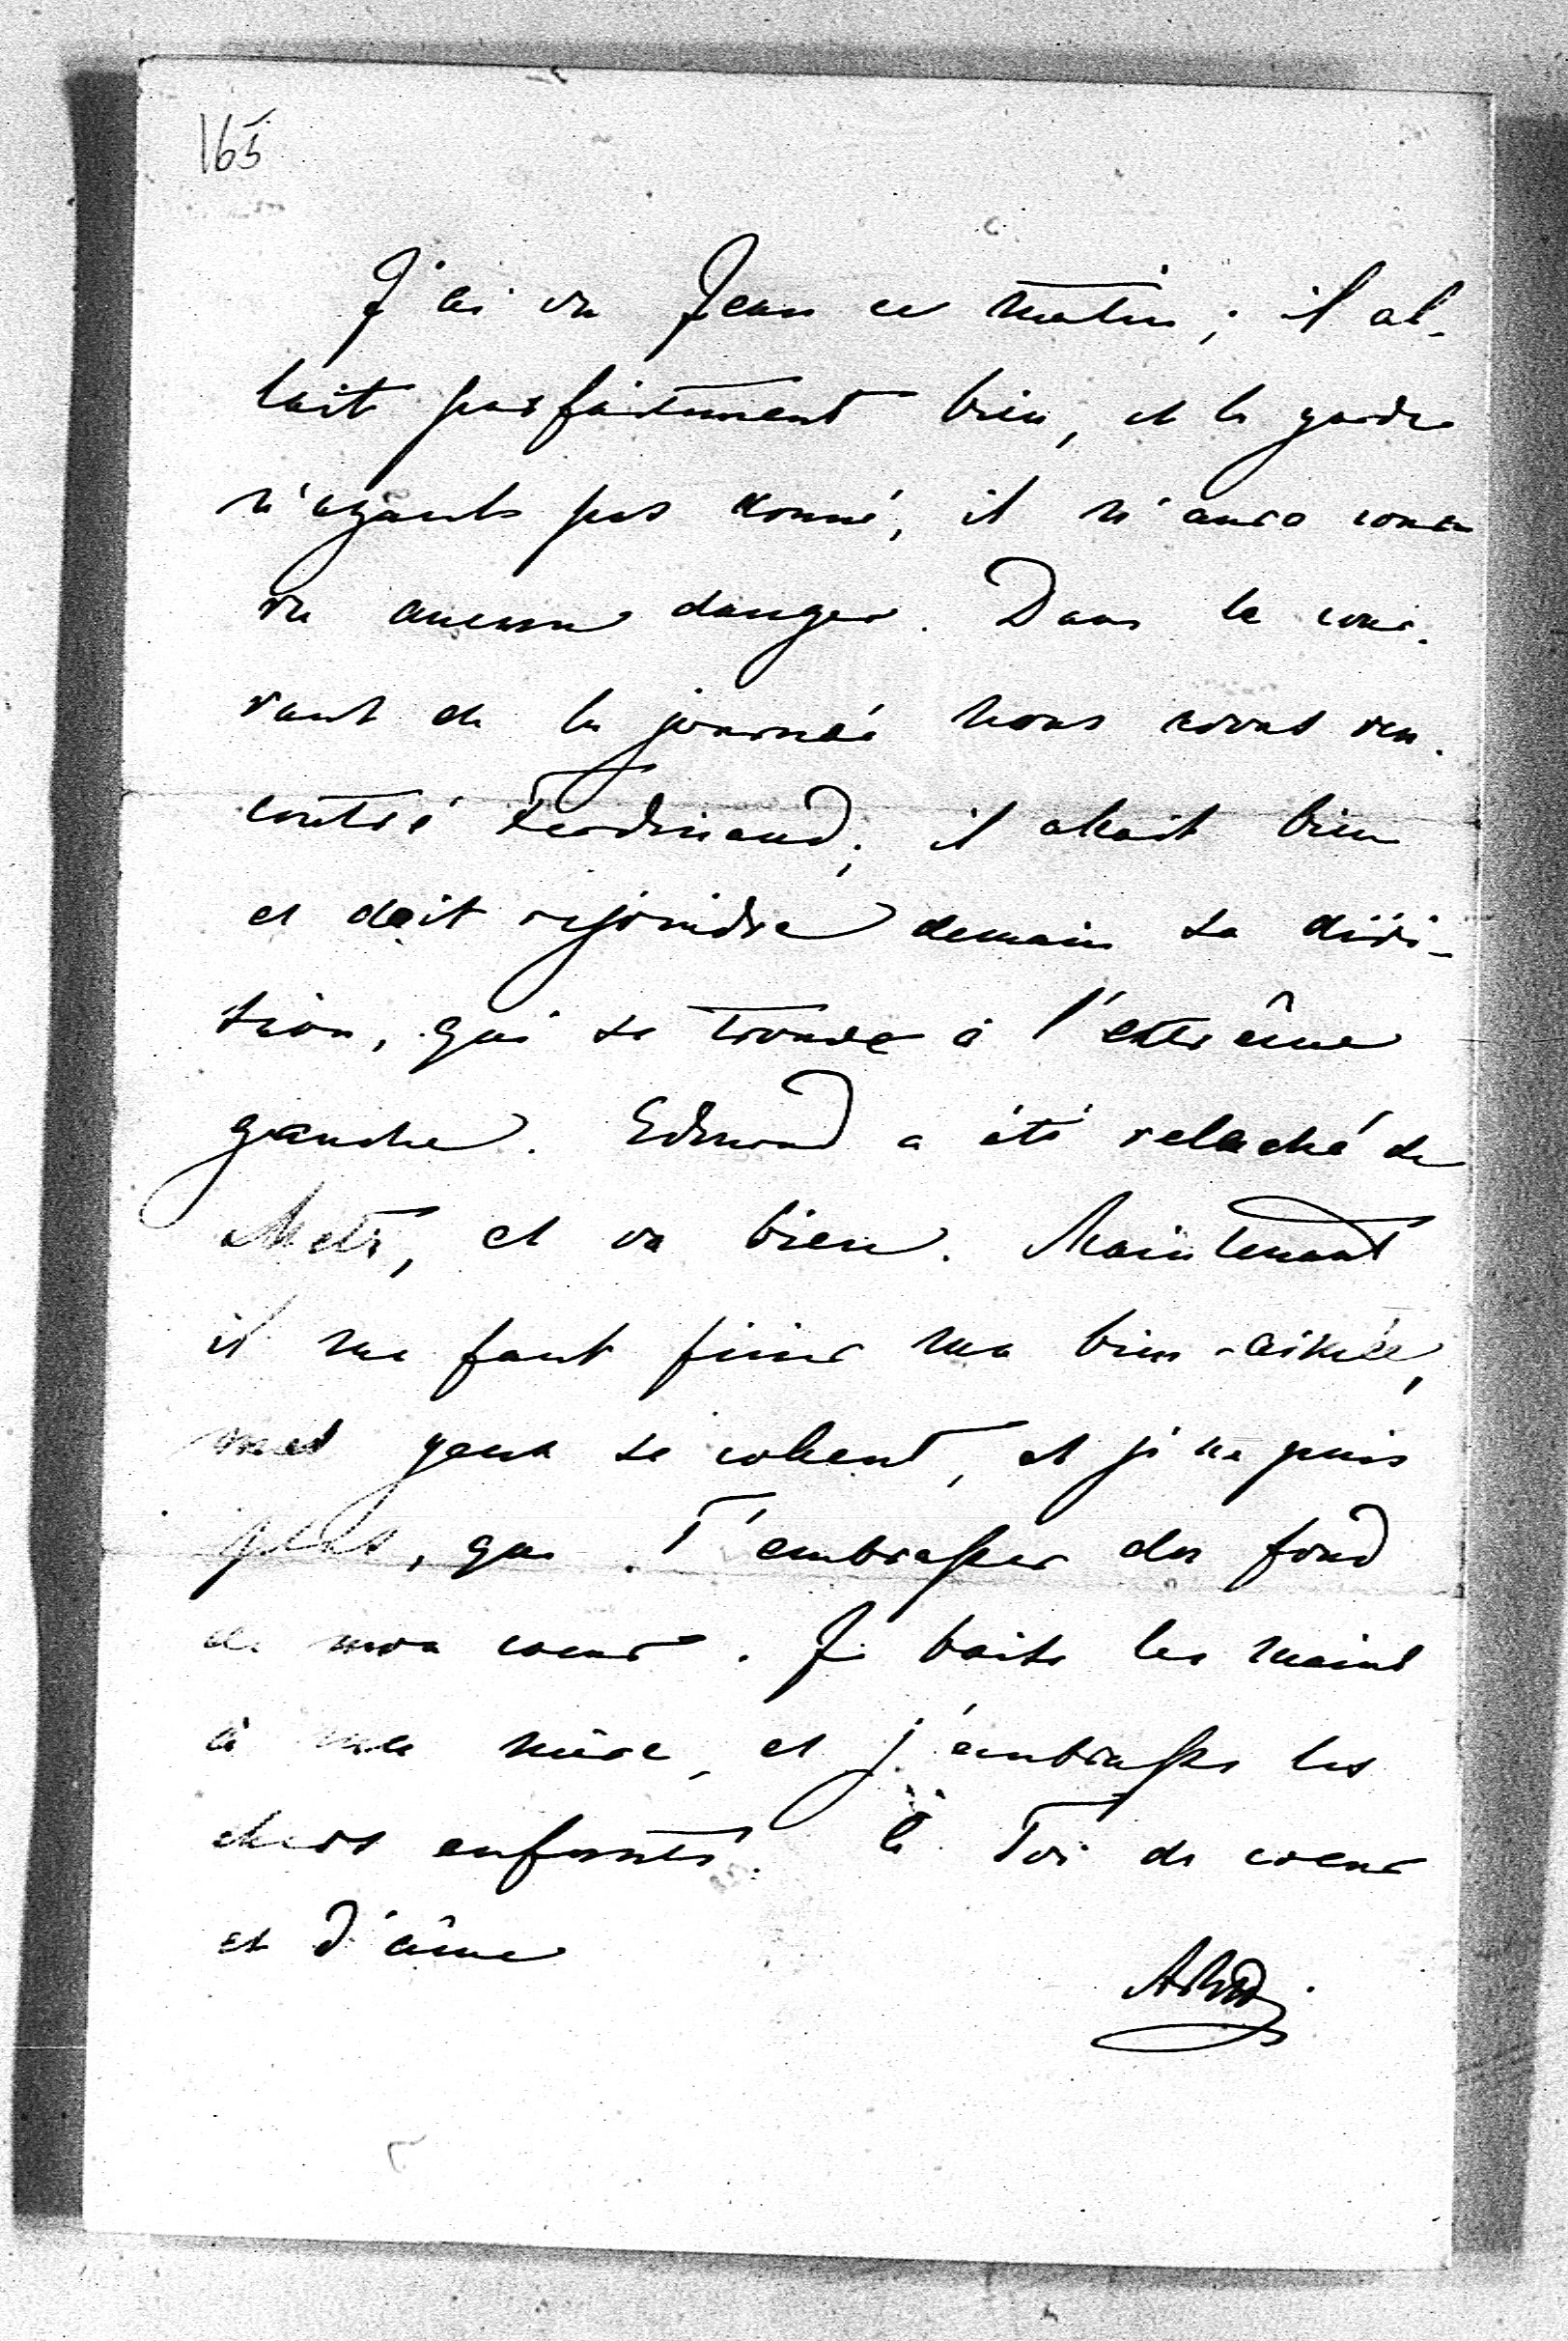 165
J'ai vu Jean ce matin; il al-
lait parfaitement bien, et la garde
n'ayant pas donné, il n'aura cou-
ru aucun danger. Dans le cou-
rant de la journée nous avons ren-
contré Ferdinand; il allait bien
et doit rejoindre demain sa divi-
sion, qui se trouve à l'extrême
gauche. Edmond a été relaché de
Metz, et va bien. Maintenant
il me faut finir ma bien-aimée,
mes yeux se collent, et je ne puis
plus, que T'embrasser du fond
de mon coeur. Je baise les mains
à ma mère, et j'embrasse les
chers enfants. à Toi de coeur
et d'âme